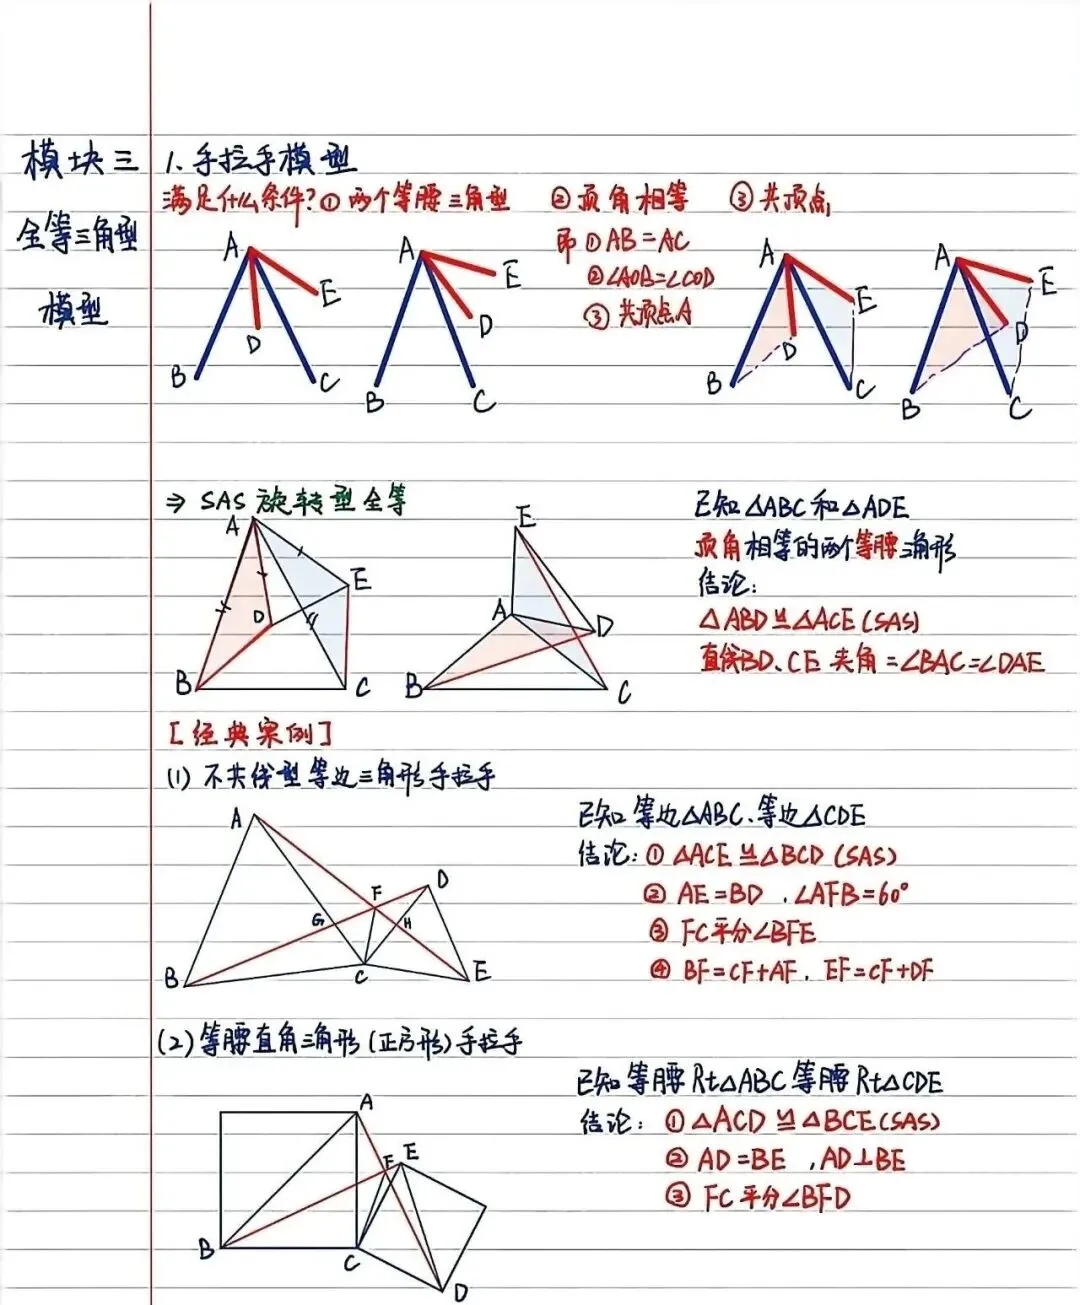 模块三
全等三角型
模型
1. 手拉手模型
满足什么条件? ① 两个等腰三角型 ② 顶角相等 ③ 共顶点
即 ① AB=AC
② ∠AOB=∠COD
③ 共顶点A
A E D B C
A E D B C
A E D B C
A E D B C
⇒ SAS 旋转型全等
A E D B C
E A D B C
已知 △ABC 和 △ADE
顶角相等的两个等腰三角形
结论:
△ABD≌△ACE (SAS)
直线BD、CE 夹角=∠BAC=∠DAE
[经典案例]
(1) 不共线型等边三角形手拉手
A D F G H B C E
已知 等边△ABC、等边△CDE
结论: ① △ACE≌△BCD (SAS)
② AE=BD , ∠AFB=60°
③ FC平分∠BFE
④ BF=CF+AF , EF=CF+DF
(2) 等腰直角三角形 (正方形) 手拉手
A F E B C D
已知 等腰Rt△ABC 等腰Rt△CDE
结论: ① △ACD≌△BCE (SAS)
② AD=BE , AD⊥BE
③ FC平分∠BFD